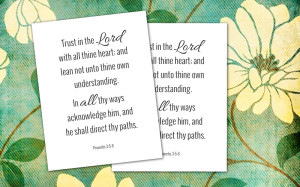 Trust in the Lord
with all thine heart; and
lean not unto thine own
understanding.
In all thy ways
acknowledge him, and
he shall direct thy paths.
Proverbs 3:5-6
ust in the Lord
all thine heart; and
not unto thine own
derstanding.
all thy ways
wledge him, and
direct thy paths.
verbs 3:5-6